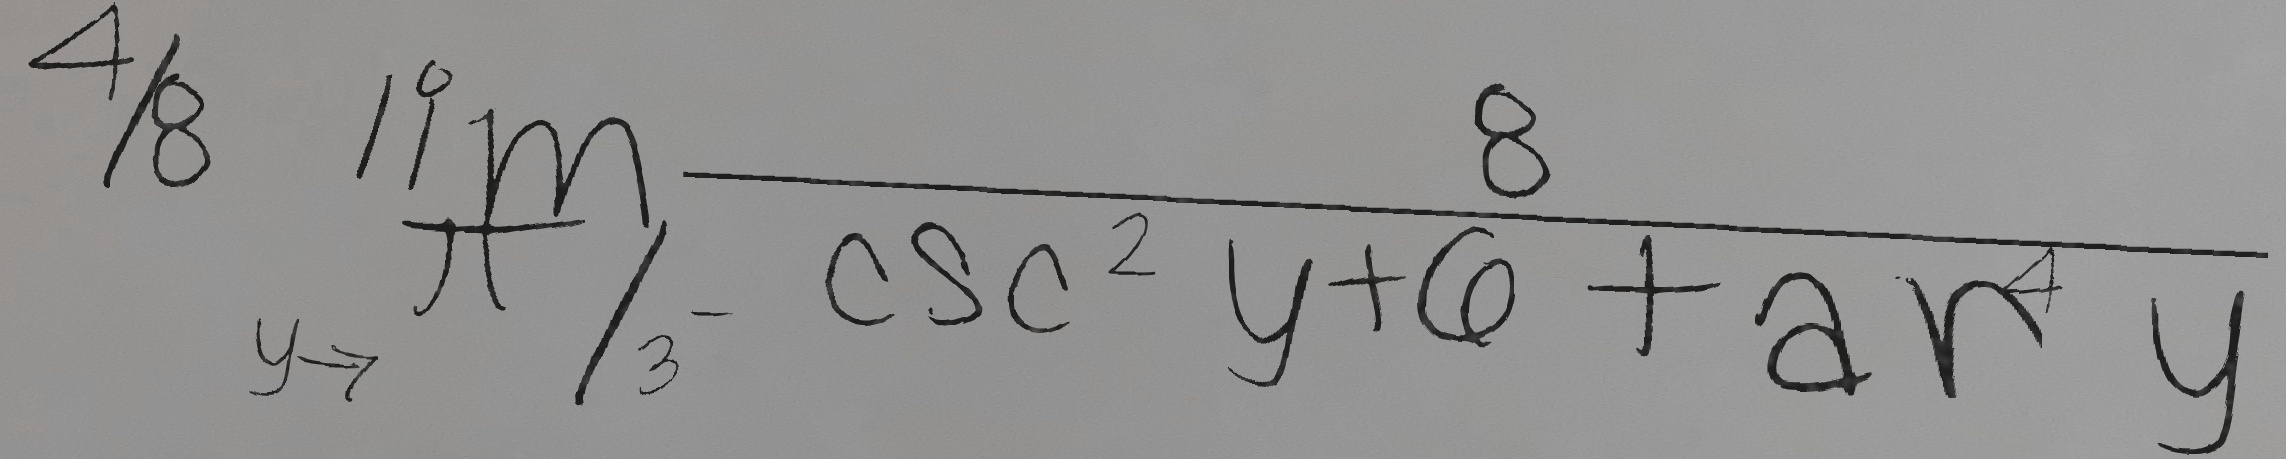 4/8 lim y→π/3 8/(-csc² y+6+tan⁴ y)